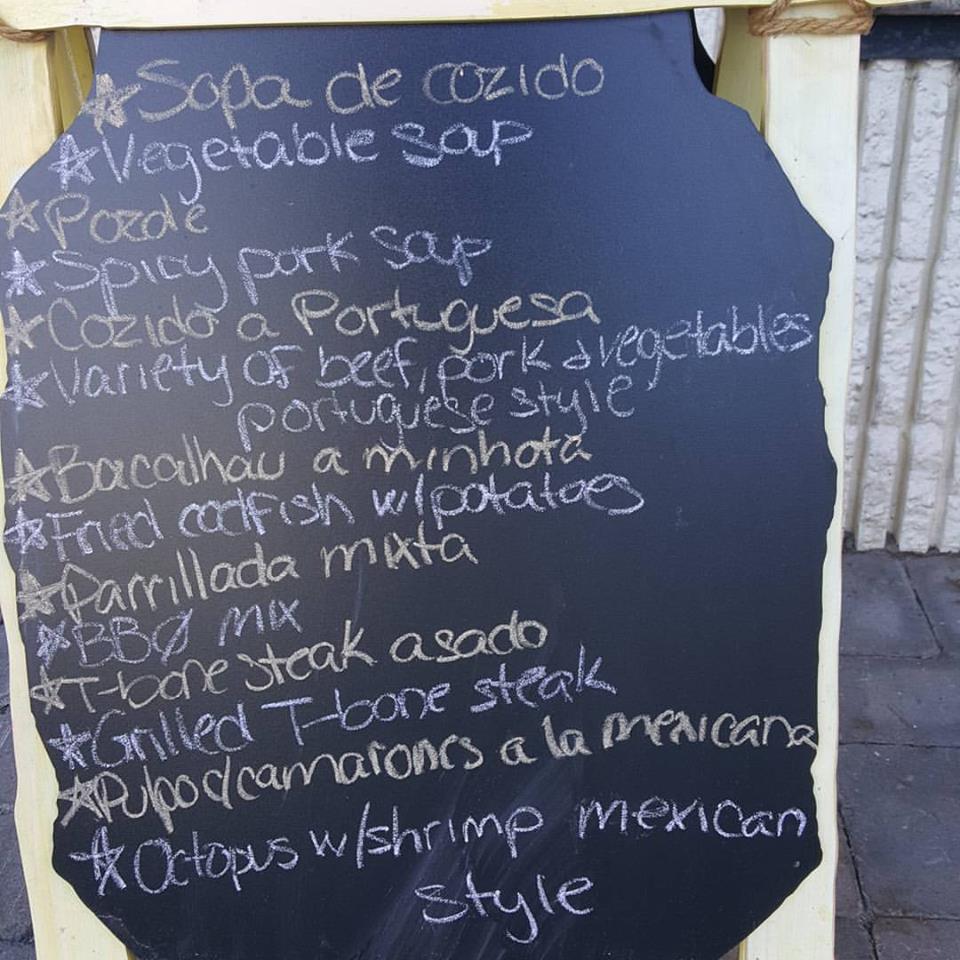 ☆Sopa de cozido
☆Vegetable soup
☆Pozole
☆Spicy pork soup
☆Cozido a Portuguesa
☆Variety of beef, pork & vegetables
portuguese style
☆Bacalhau a minhota
☆Fried codfish w/potatoes
☆Parrillada mixta
☆BBQ mix
☆T-bone steak asado
☆Grilled T-bone steak
☆Pulpo d camarones a la mexicana
☆Octopus w/shrimp mexican
style